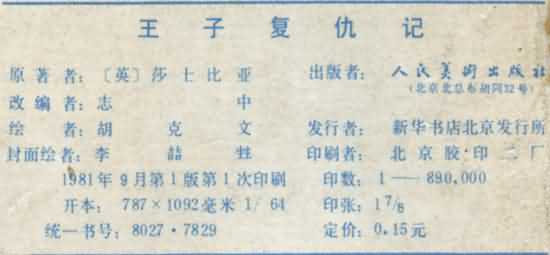 王子复仇记
原著者：〔英〕莎士比亚 出版者：人民美术出版社
（北京北总布胡同32号）
改编者：志中
绘者：胡克文 发行者：新华书店北京发行所
封面绘者：李喆 印刷者：北京胶印二厂
1981年9月第1版第1次印刷 印数：1——890,000
开本：787×1092毫米1/64 印张：1 7/8
统一书号：8027·7829 定价：0.15元